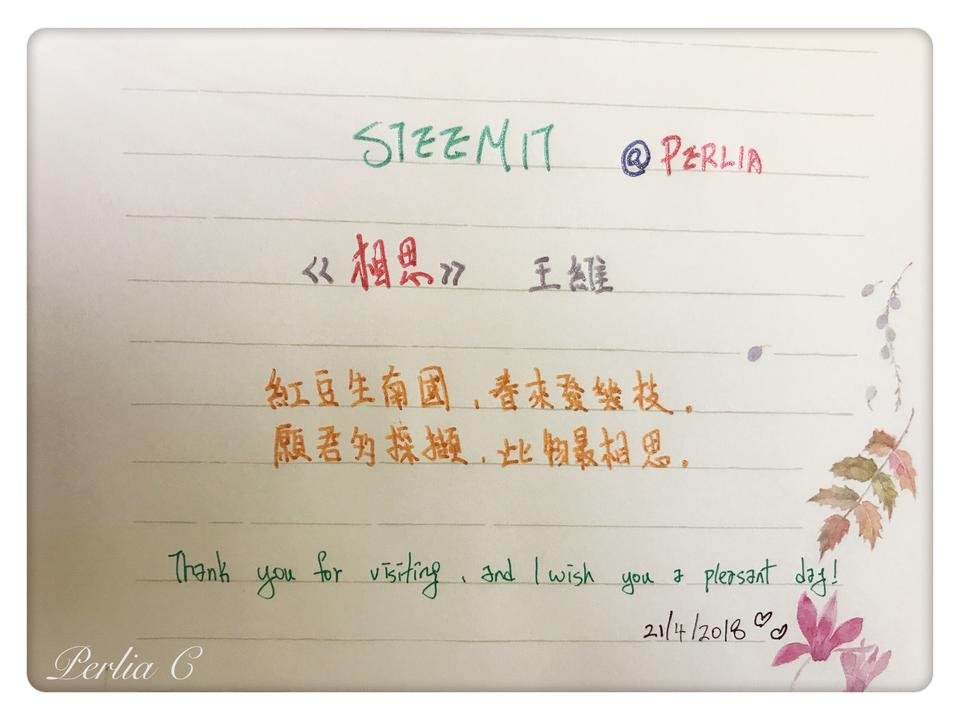 STEEMIT @PERLIA
《相思》 王維
紅豆生南國，春來發幾枝。
願君多採擷，此物最相思。
Thank you for visiting, and I wish you a pleasant day!
21/4/2018
Perlia C